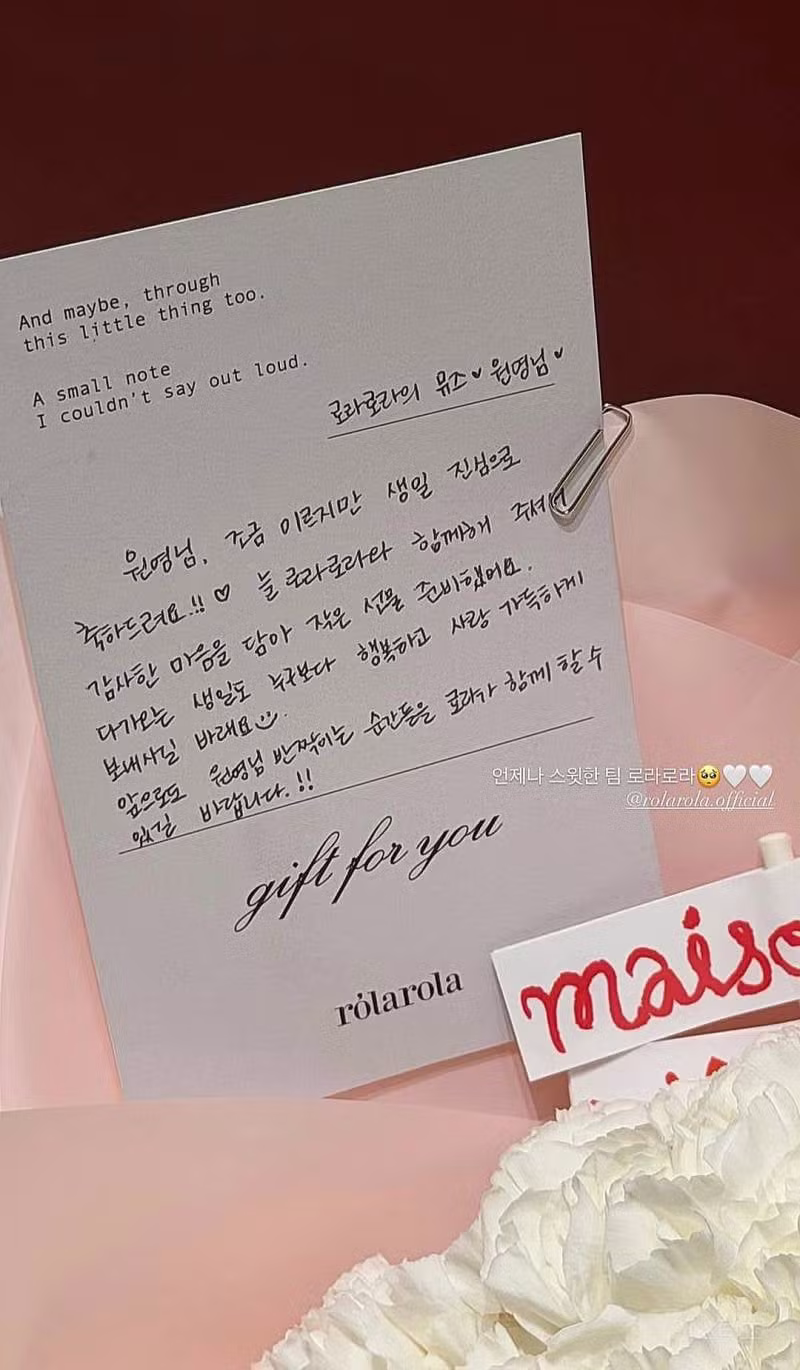 And maybe, through
this little thing too.
A small note
I couldn't say out loud.
로라로라의 뮤즈♥원영님♥
원영님, 조금 이르지만 생일 진심으로
축하드려요!! ♡ 늘 로라로라와 함께해 주셔서
감사한 마음을 담아 작은 선물 준비했어요.
다가오는 생일도 누구보다 행복하고 사랑 가득하게
보내시길 바래요☺.
앞으로도 원영님 반짝이는 순간들을 로라가 함께 할 수
있길 바랍니다.!!
언제나 스윗한 팀 로라로라🥺🤍🤍
@rolarola.official
gift for you
rolarola
maiso